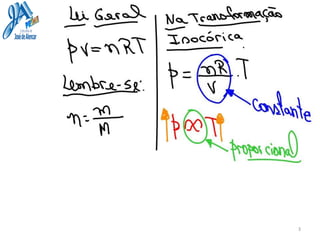 José de Alencar
Lei Geral
pv=nRT
Lembre-se:
n=m/M
Na Transformação
Isocórica
p=nR/V.T
constante
p∝T
proporcional
3